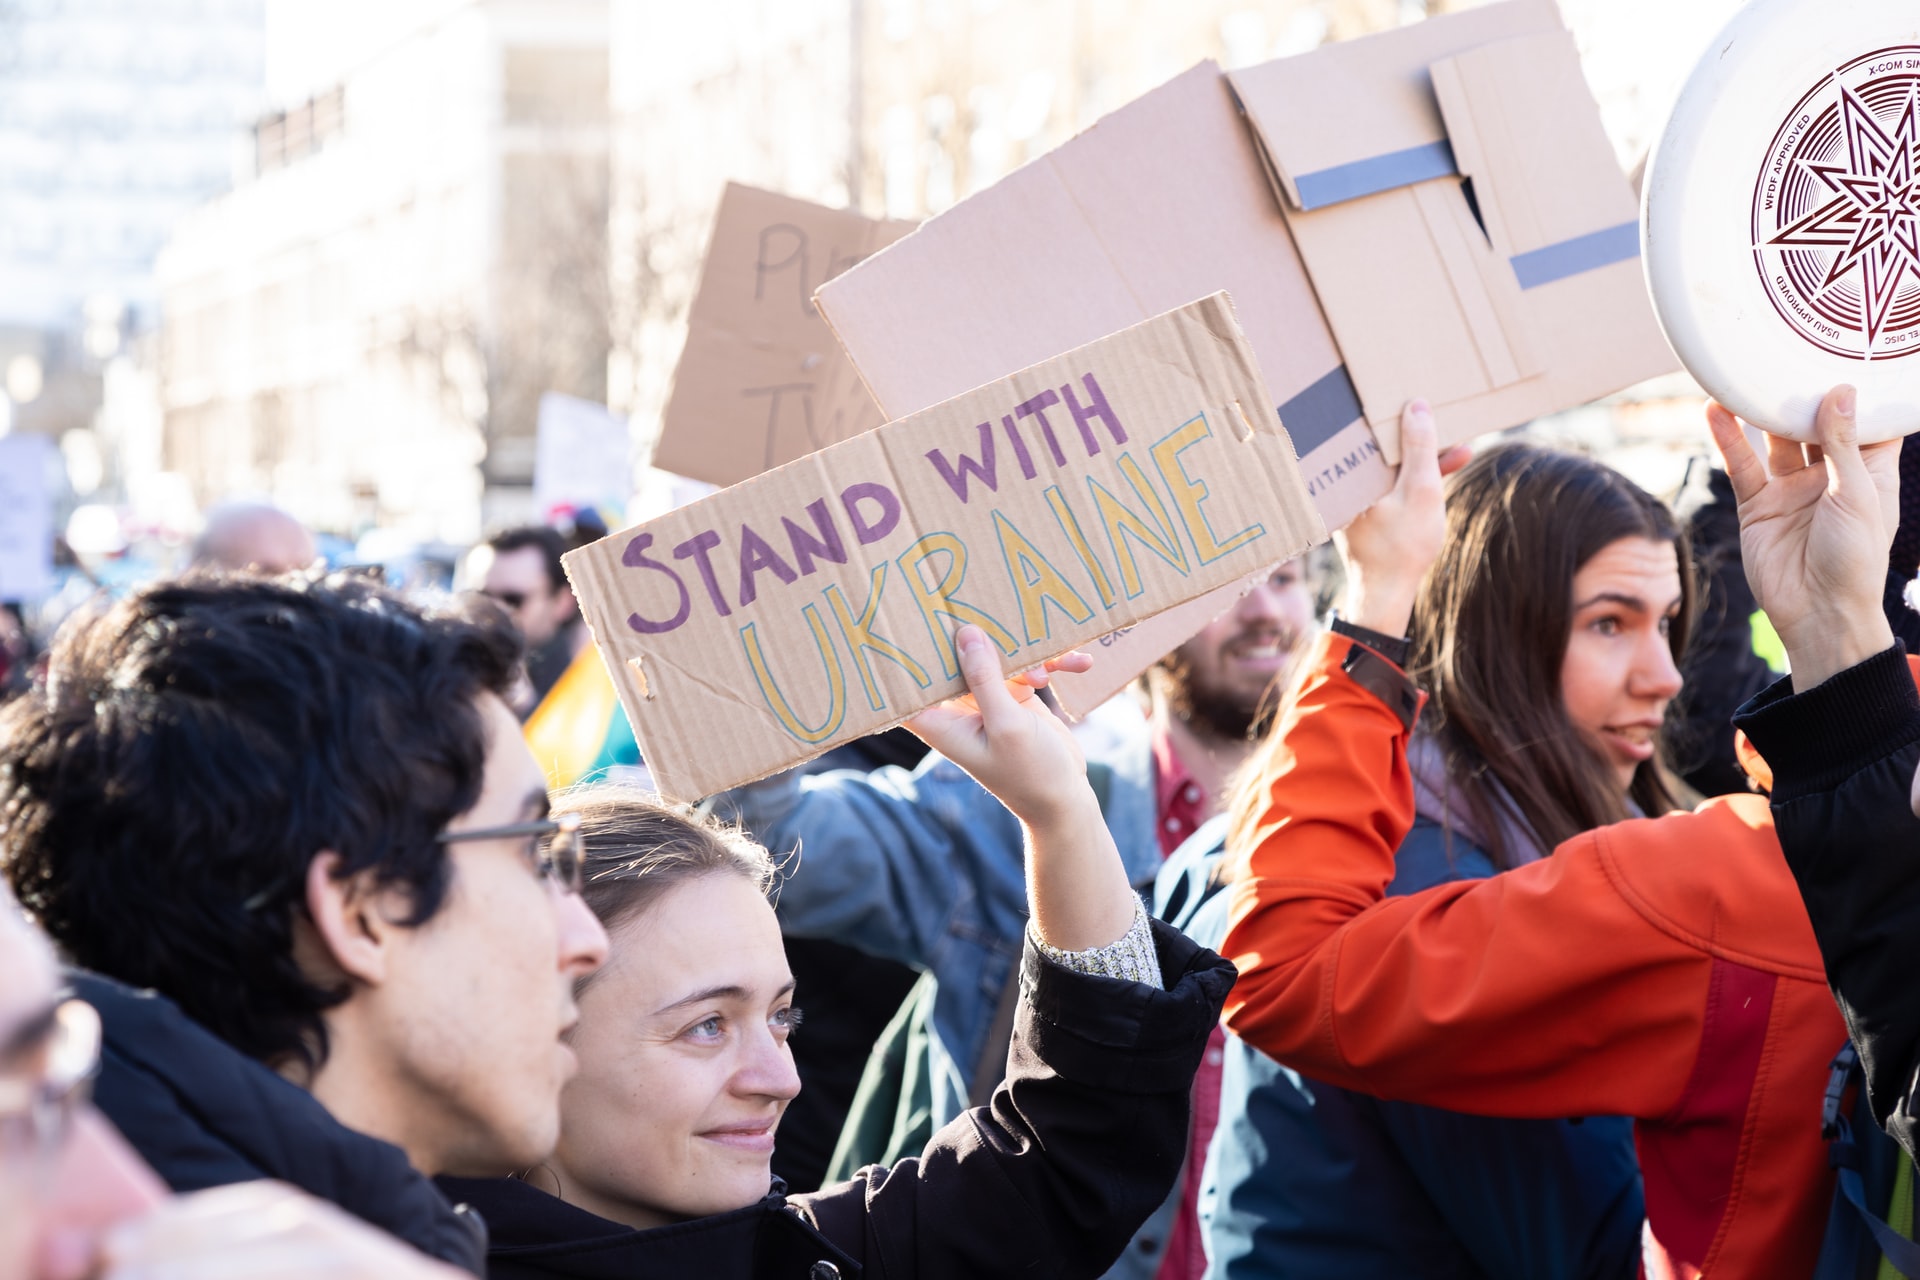 STAND WITH
UKRAINE
PU
TW
VITAMIN
X-COM SIN
WFDF APPROVED
USAU APPROVED
EL DISC